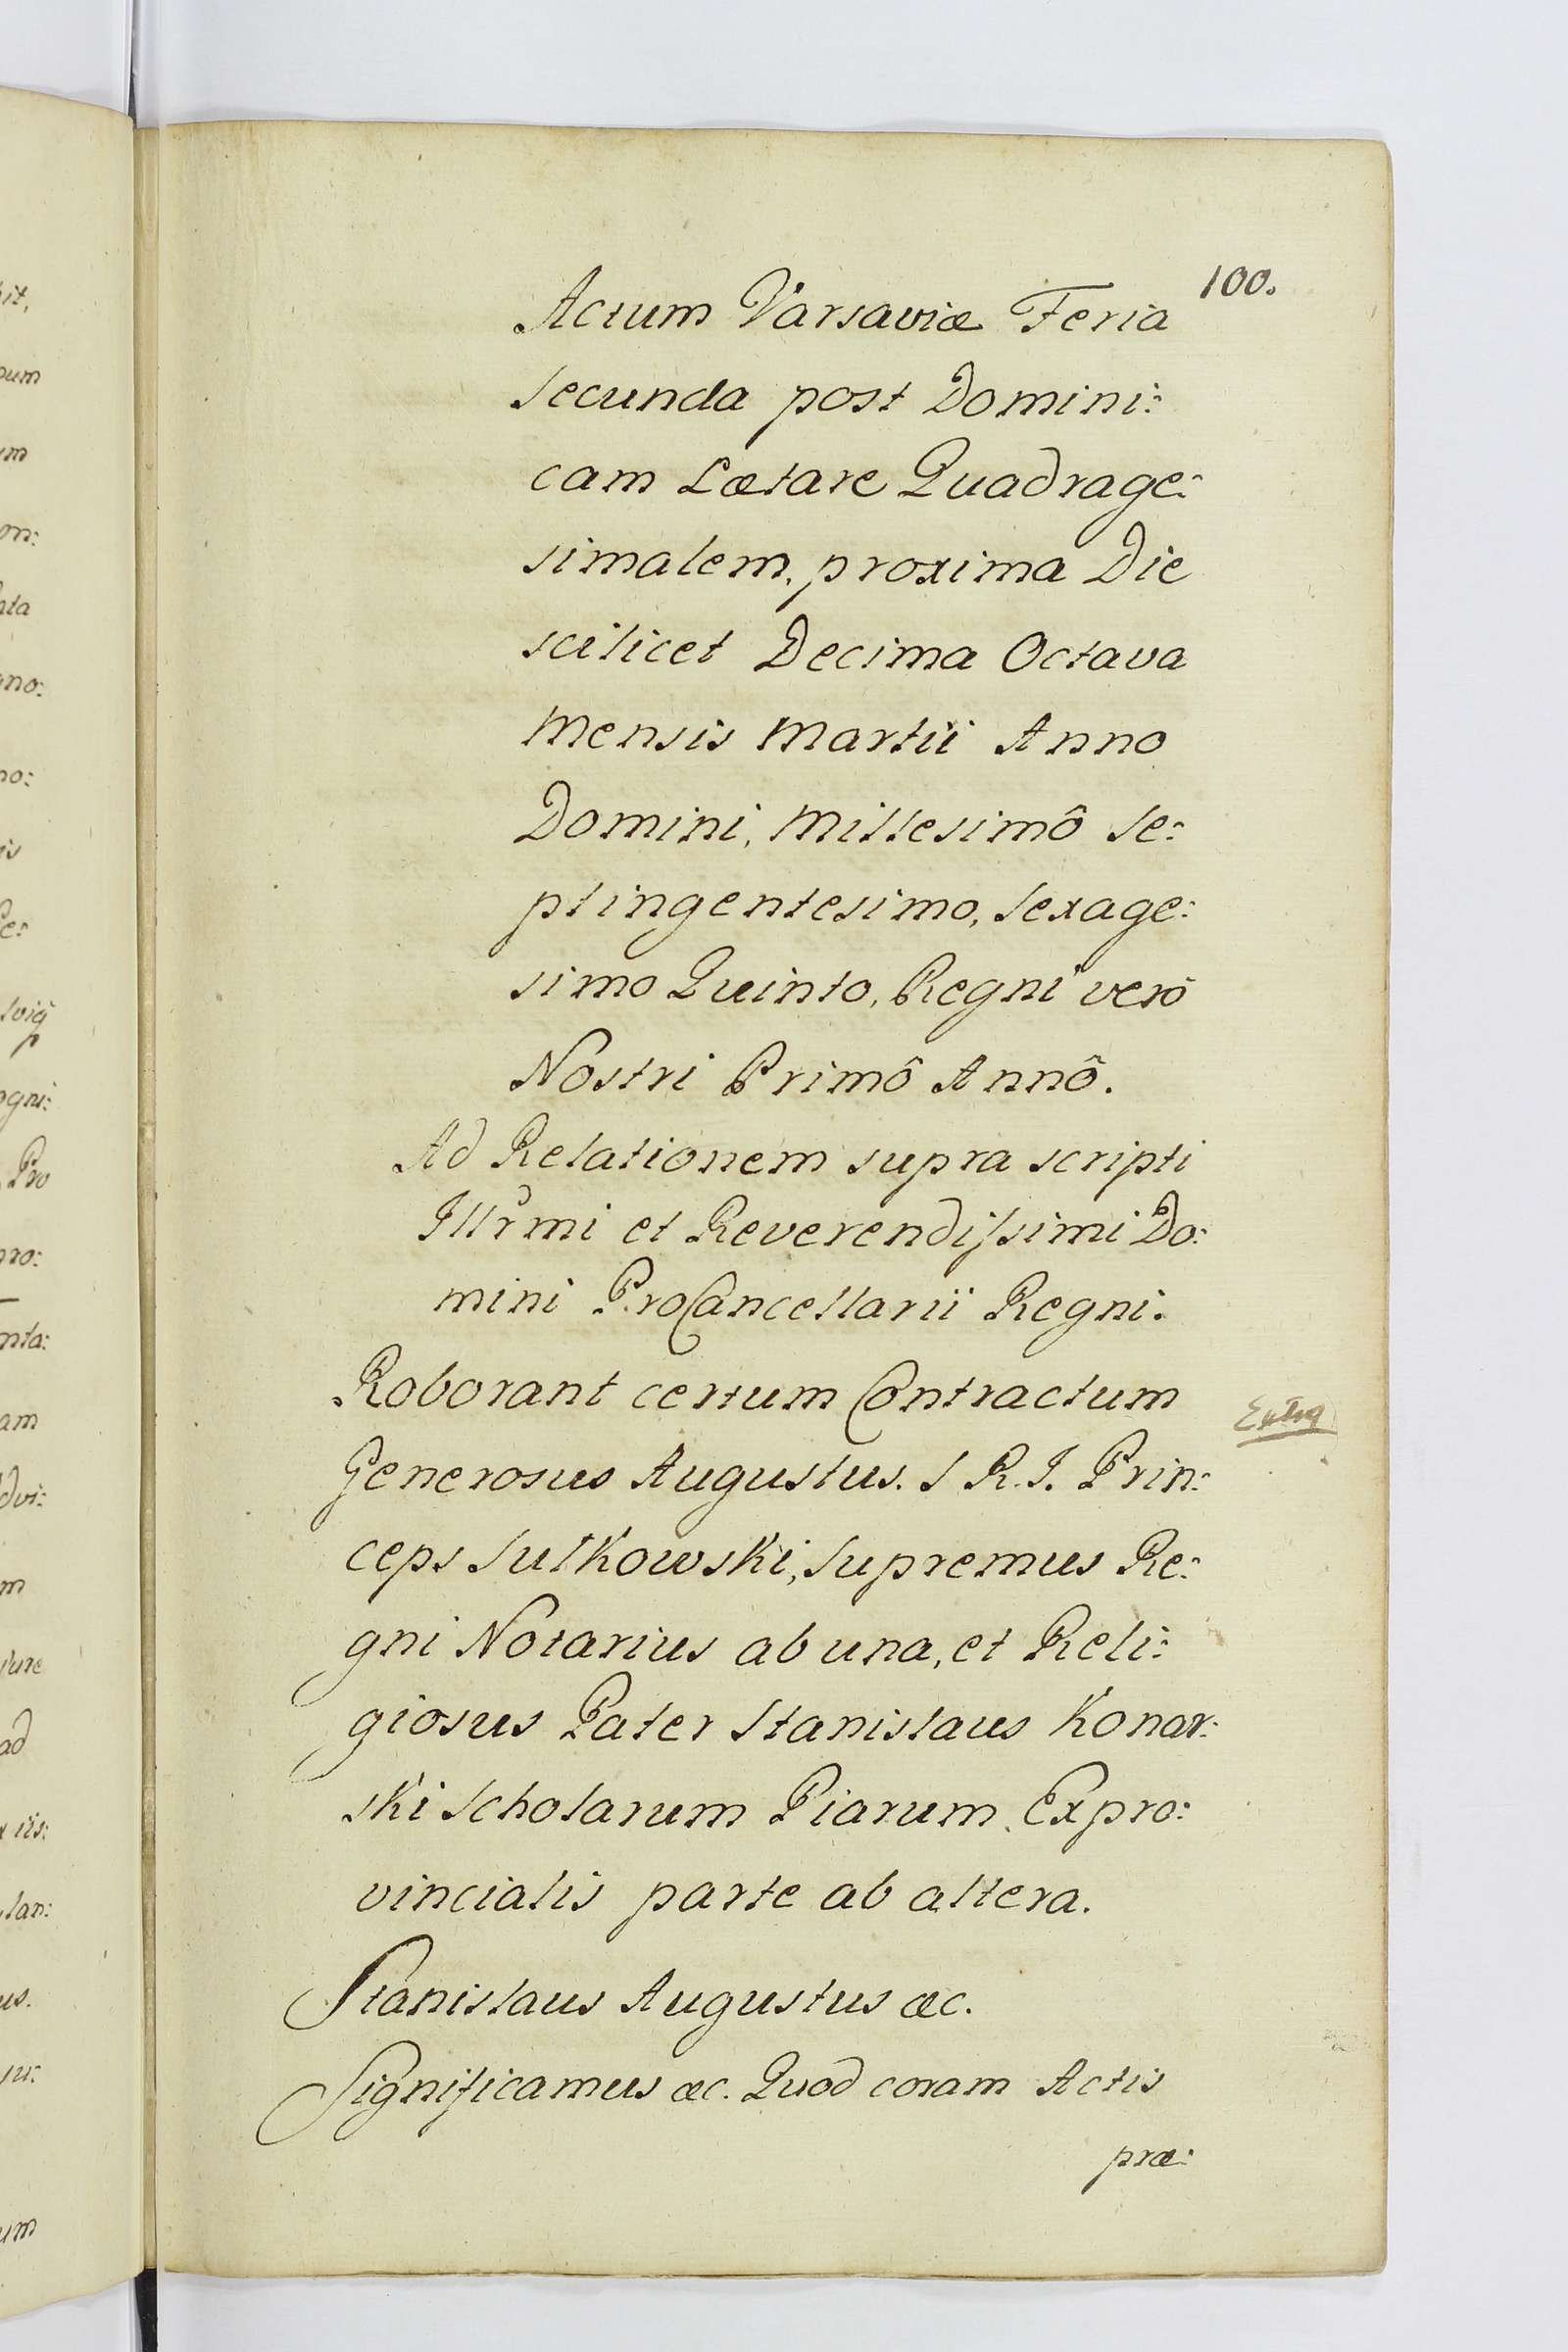 100.
Actum Varsaviæ Feria
Secunda post Domini:
cam Lætare Quadrage:
simalem, proxima Die
scilicet Decima Octava
Mensis Martii Anno
Domini, Millesimô Se:
ptingentesimo, Sexage:
simo Quinto, Regni verò
Nostri Primô Annô.
Ad Relationem supra scripti
Illrmi et Reverendissimi Do:
mini ProCancellarii Regni.
Roborant certum Contractum
Generosus Augustus. S R. I. Prin:
ceps Sulkowski, Supremus Re:
gni Notarius ab una, et Reli:
giosus Pater Stanislaus Konar:
ski Scholarum Piarum Expro:
vincialis parte ab altera.
Stanislaus Augustus æc.
Significamus æc. Quod coram Actis
præ: